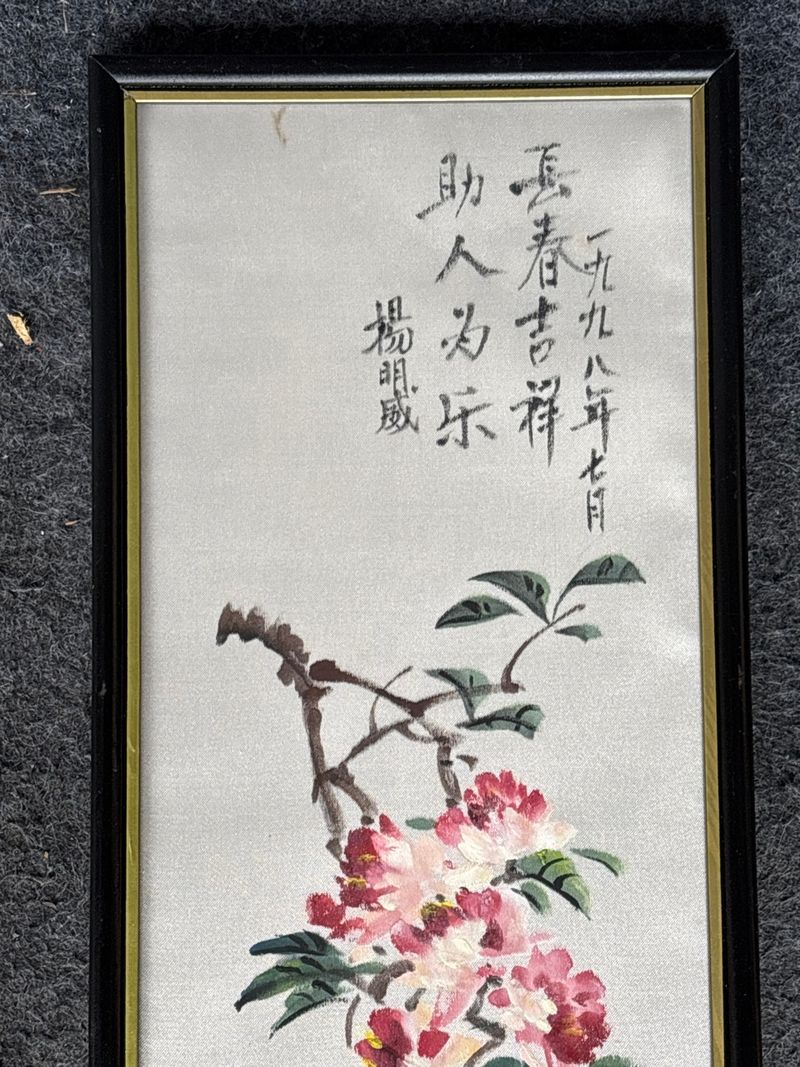 一九九八年七月
長春吉祥
助人为乐
楊明威